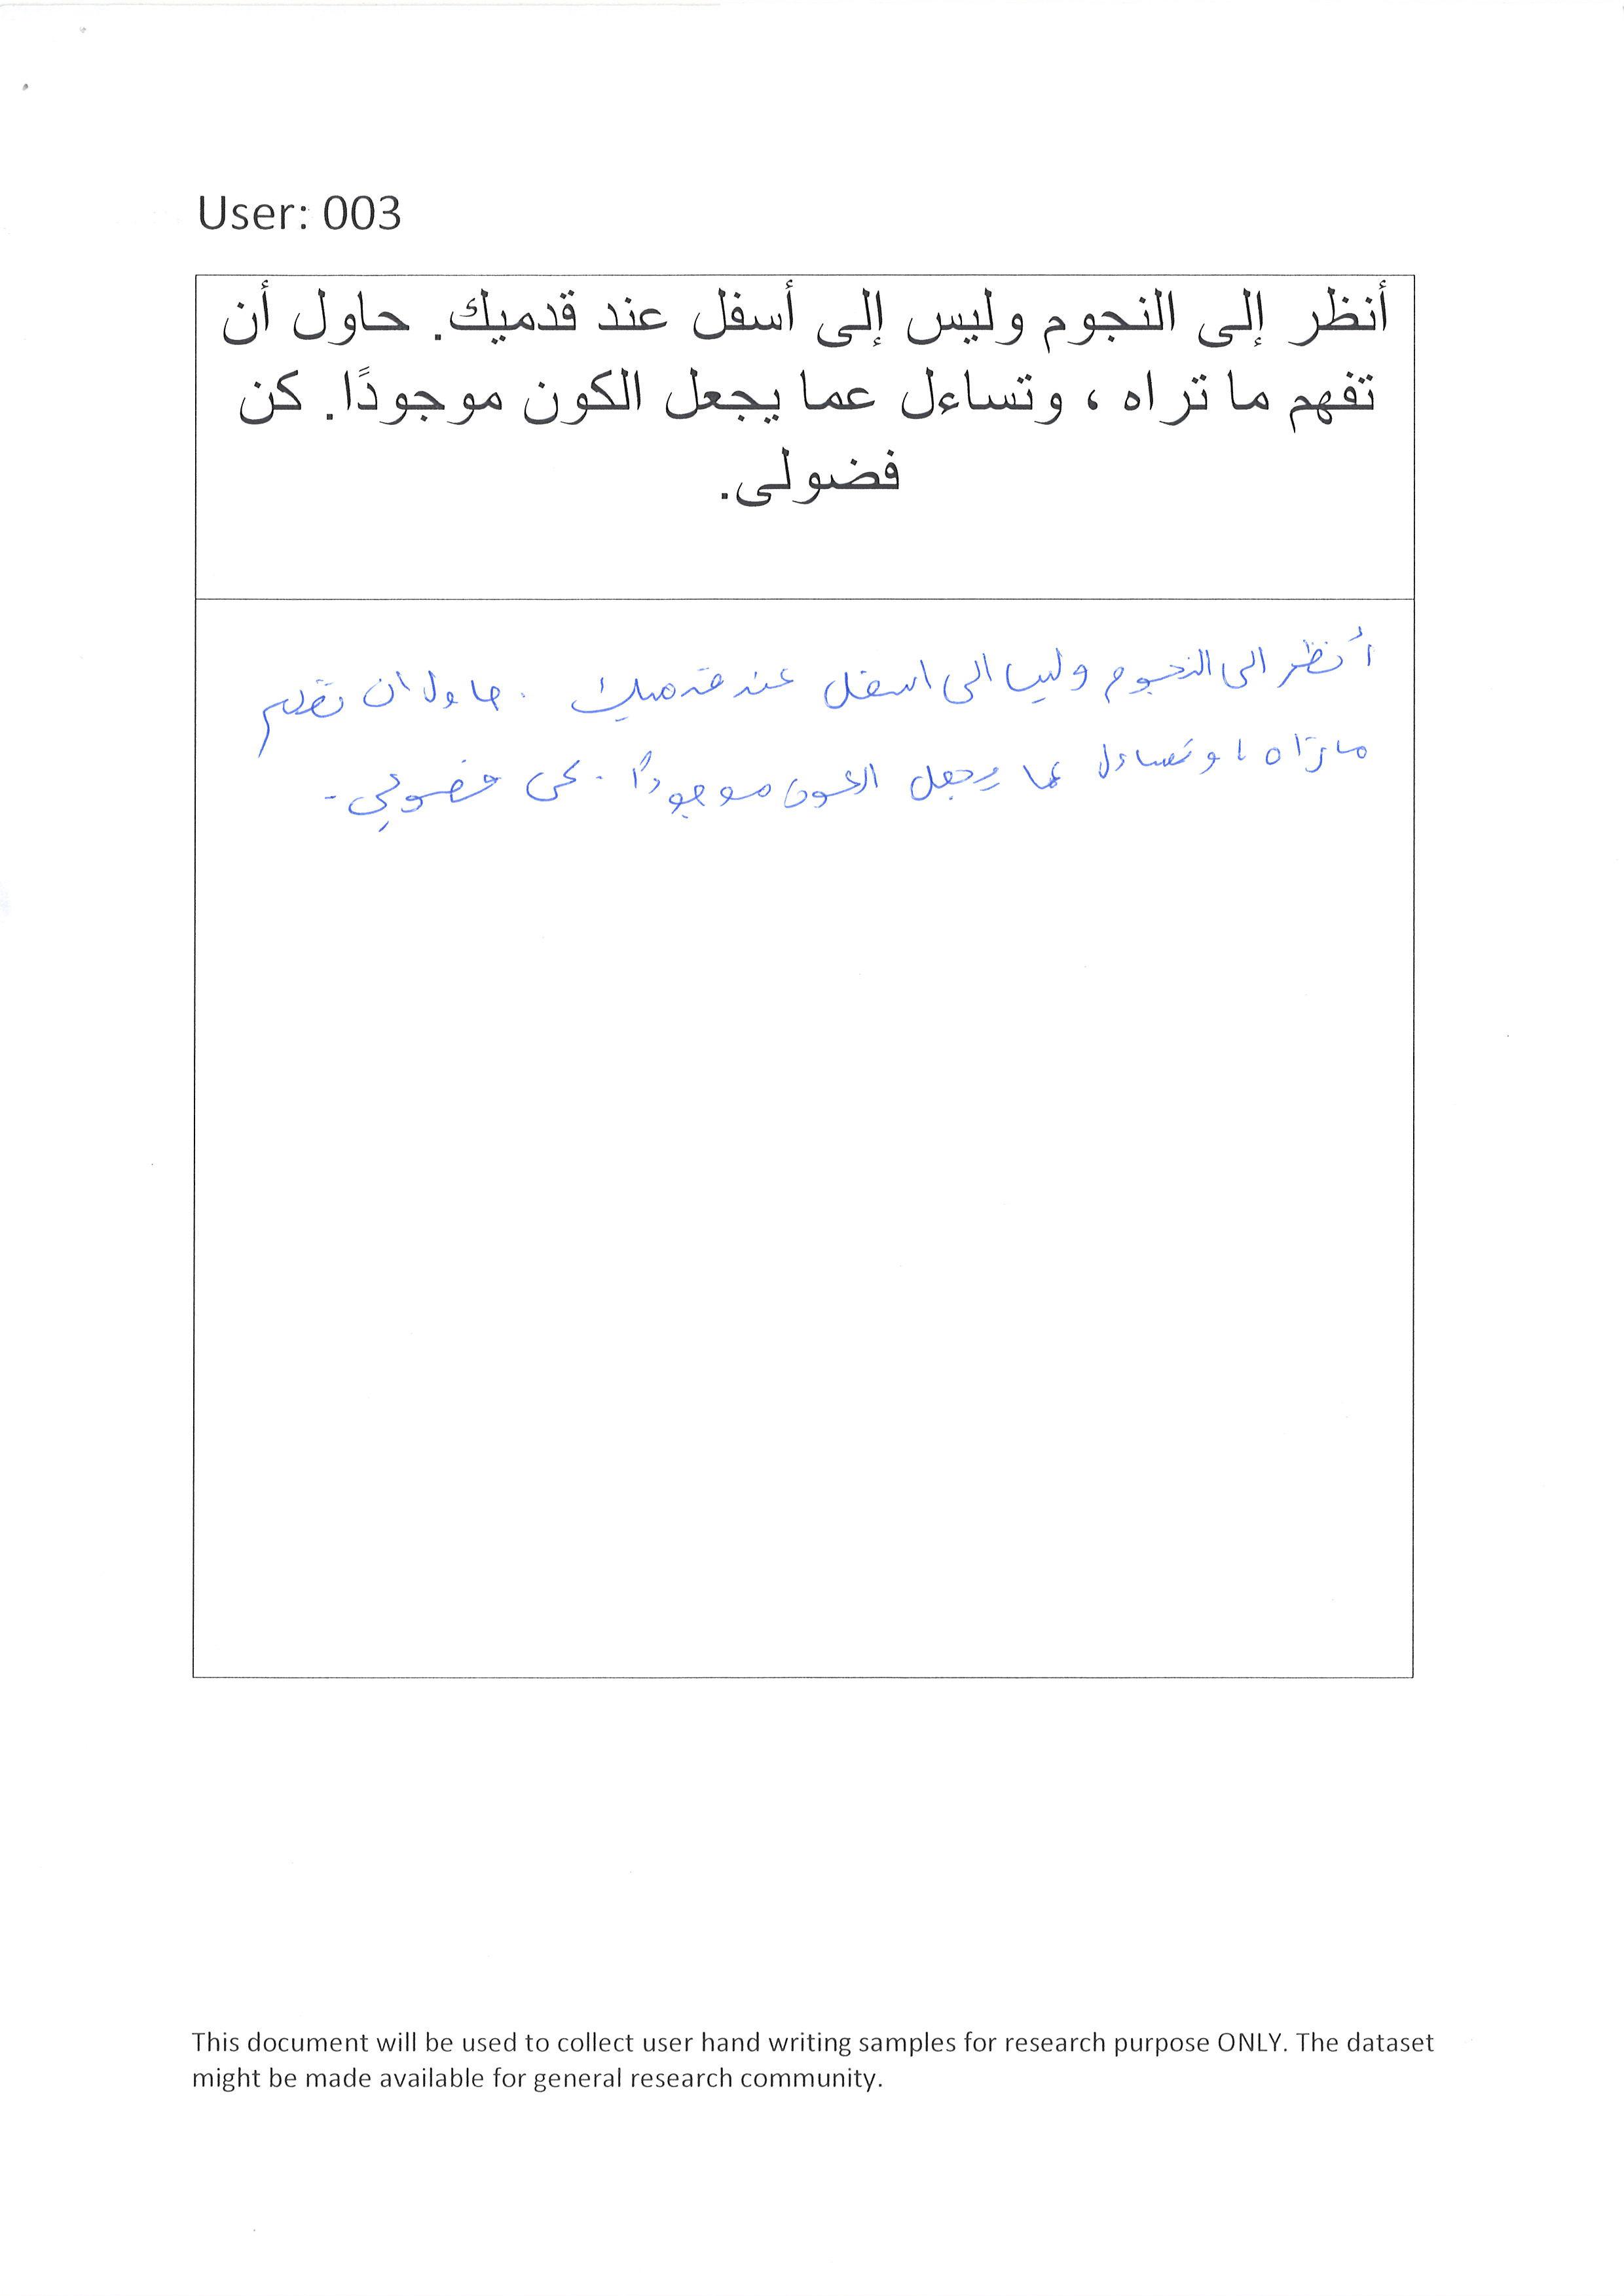 User: 003
أنظر إلى النجوم وليس إلى أسفل عند قدميك. حاول أن
تفهم ما تراه ، وتساءل عما يجعل الكون موجودًا. كن
فضولى.
أنظر الى النجوم وليس الى اسفل عند قدميك . حاول ان تفهم
ما تراه ، وتساءل عما يجعل الكون موجوداً . كن فضولي .
This document will be used to collect user hand writing samples for research purpose ONLY. The dataset
might be made available for general research community.